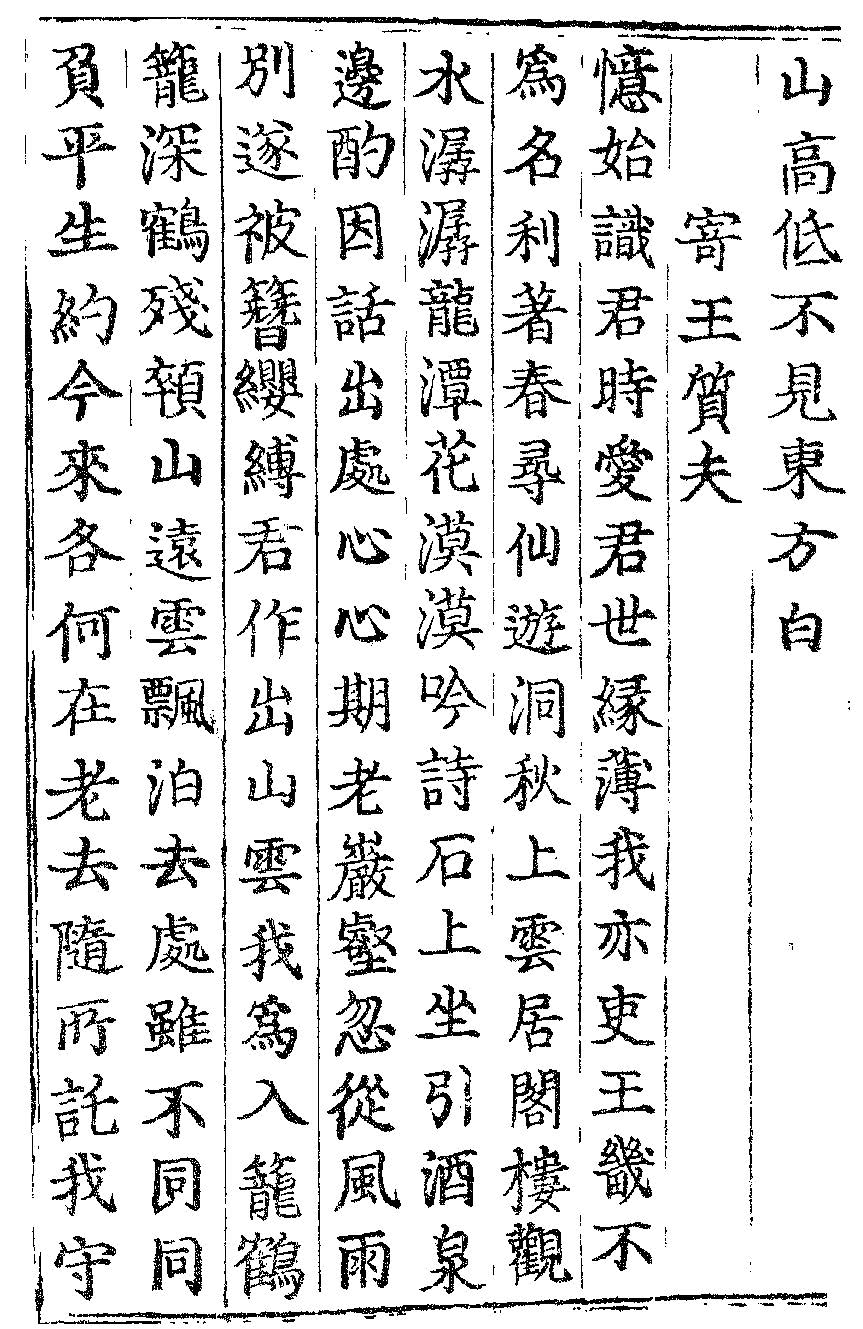 山高低不見東方白
寄王質夫
憶始識君時愛君世縁薄我亦吏王畿不
爲名利著春尋仙遊洞秋上雲居閣樓觀
水潺潺龍潭花漠漠吟詩石上坐引酒泉
邊酌因話出處心心期老巖壑忽從風雨
別遂被簪纓縛君作出山雲我爲入籠鶴
籠深鶴殘顇山遠雲飄泊去處雖不同同
負平生約今來各何在老去隨所託我守